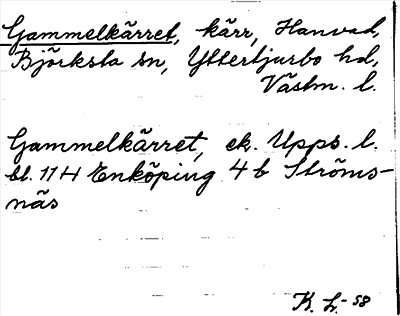 Gammelkärret, kärr, Hanvad,
Björksta sn, Yttertjurbo hd,
Västm. l.
Gammelkärret, ek. Upps. l.
bl. 114 Enköping 4 b Ströms-
näs
K. L. -58